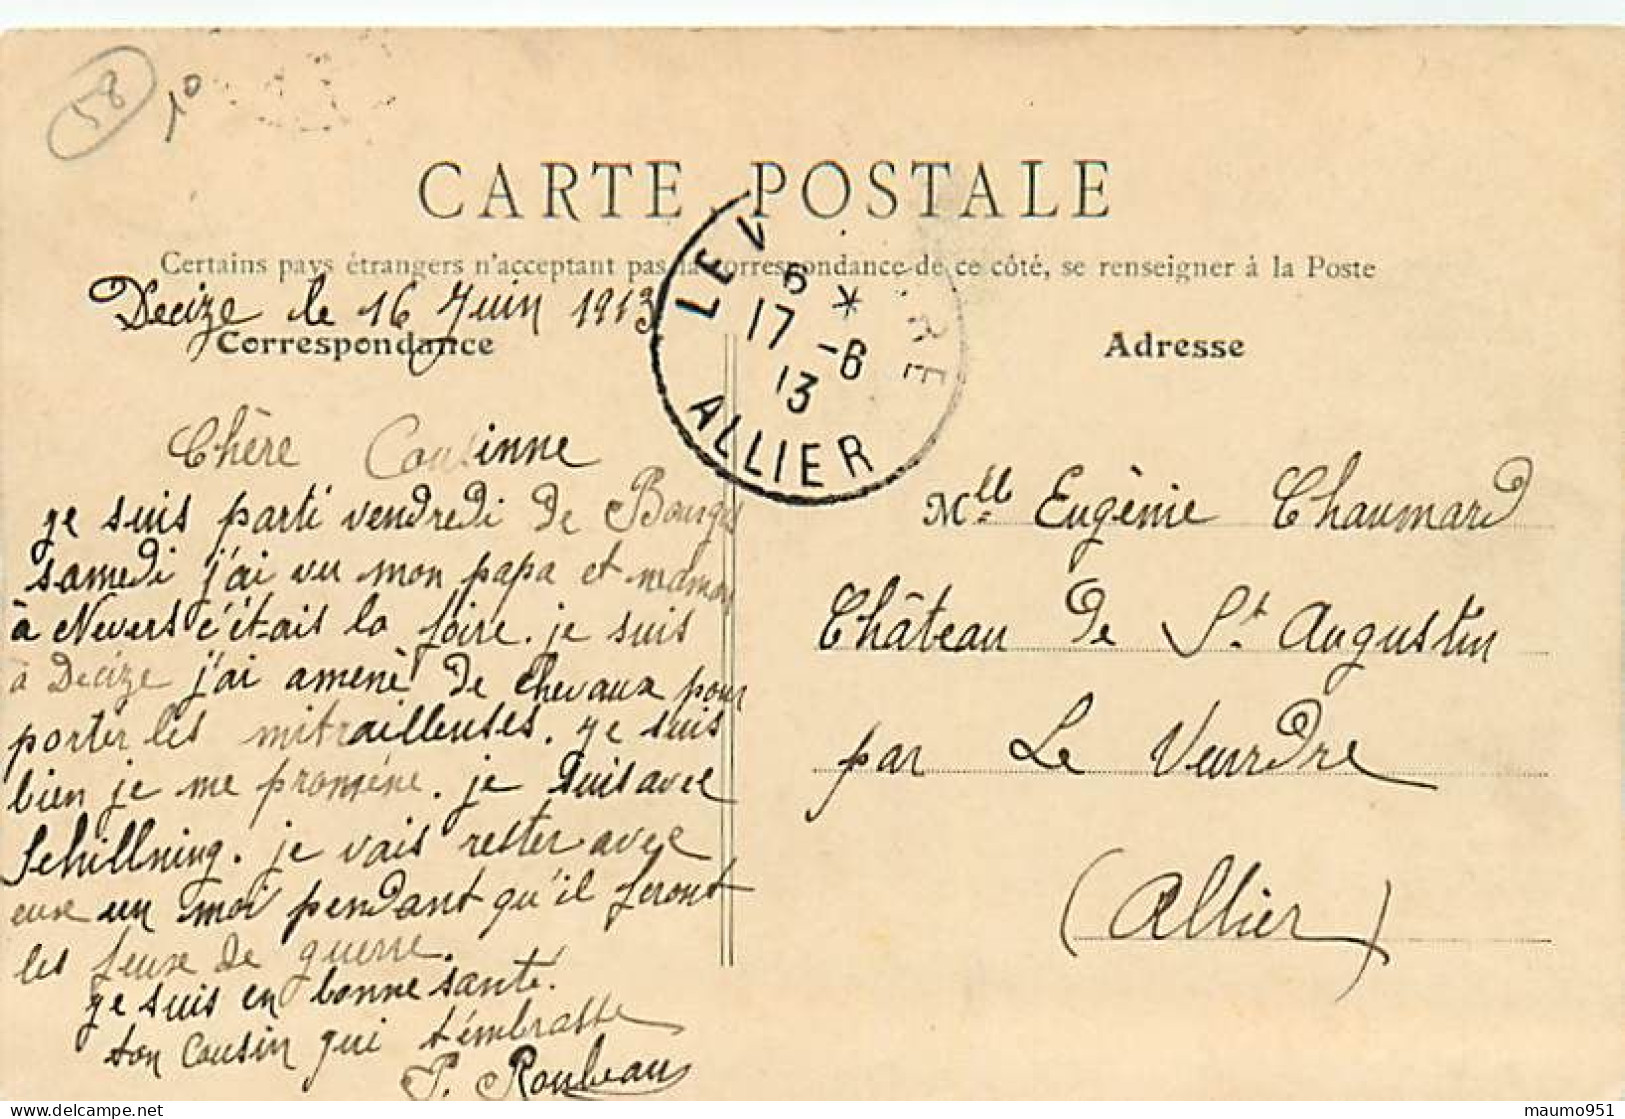 58
10
CARTE POSTALE
Certains pays étrangers n'acceptant pas la correspondance de ce côté, se renseigner à la Poste
Decize le 16 Juin 1913
Correspondance
LE V RE
6 *
17 -6
13
ALLIER
Adresse
Chère Cousinne
je suis parti vendredi de Bourges
samedi j'ai vu mon papa et
à Nevers c'était la foire. je suis
à Decize j'ai amenè de chevaux pour
porter les mitrailleuses. je suis
bien je me promène. je suis avec
Schillning. je vais rester avec
euxe un moi pendant qu'il feront
les feuxe de guerre.
je suis en bonne santé.
ton cousin qui t'émbrasse
P. Roubeau
Mlle Eugènie Chaumard
Château de St. Augustin
par Le Veurdre
(Allier)
maumo951